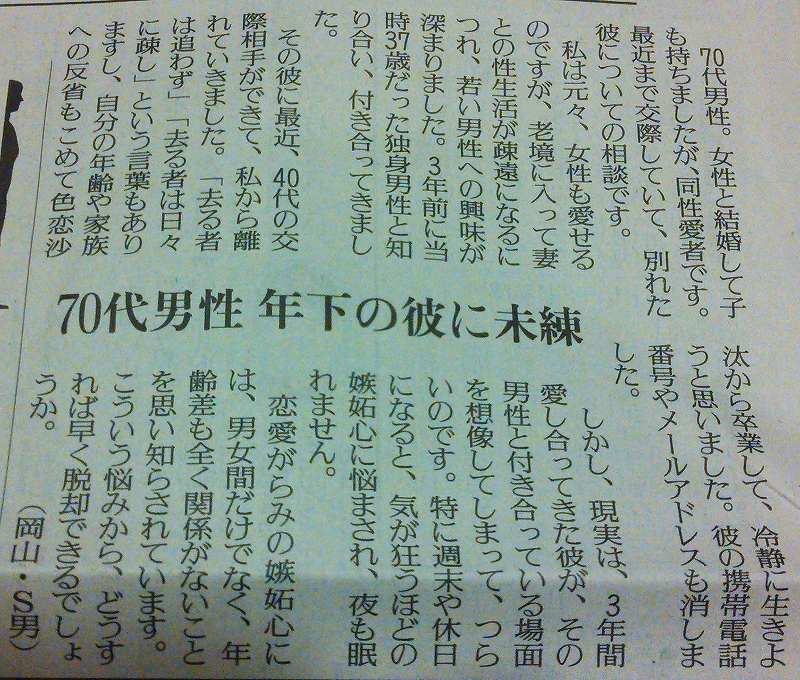 70代男性　年下の彼に未練
70代男性。女性と結婚して子
も持ちましたが、同性愛者です。
最近まで交際していて、別れた
彼についての相談です。
私は元々、女性も愛せる
のですが、老境に入って妻
との性生活が疎遠になるに
つれ、若い男性への興味が
深まりました。3年前に当
時37歳だった独身男性と知
り合い、付き合ってきまし
た。
その彼に最近、40代の交
際相手ができて、私から離
れていきました。「去る者
は追わず」「去る者は日々
に疎し」という言葉もあり
ますし、自分の年齢や家族
への反省もこめて色恋沙
汰から卒業して、冷静に生きよ
うと思いました。彼の携帯電話
番号やメールアドレスも消しま
した。
しかし、現実は、3年間
愛し合ってきた彼が、その
男性と付き合っている場面
を想像してしまって、つら
いのです。特に週末や休日
になると、気が狂うほどの
嫉妬心に悩まされ、夜も眠
れません。
恋愛がらみの嫉妬心に
は、男女間だけでなく、年
齢差も全く関係がないこと
を思い知らされています。
こういう悩みから、どうす
れば早く脱却できるでしょ
うか。
（岡山・S男）